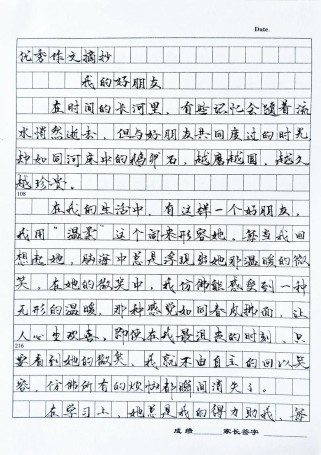 Date.
优秀作文摘抄
我的好朋友
在时间的长河里，有些记忆会随着流
水悄然逝去，但与好朋友共同度过的时光
却如同河床中的鹅卵石，越磨越圆，越久
越珍贵。
108
在我的生活中，有这样一个好朋友，
我用“温柔”这个词来形容她。每当我回
想起她，脑海中总是浮现出她那温暖的微
笑。在她的微笑中，我仿佛能感受到一种
无形的温暖，那种感觉如同春风拂面，让
人心生欢喜。即使在我最沮丧的时刻，只
216
要看到她的微笑，我就不由自主的回以笑
容，仿佛所有的烦恼都瞬间消失了。
在学习上，她总是我的得力助我，每
成绩 家长签字